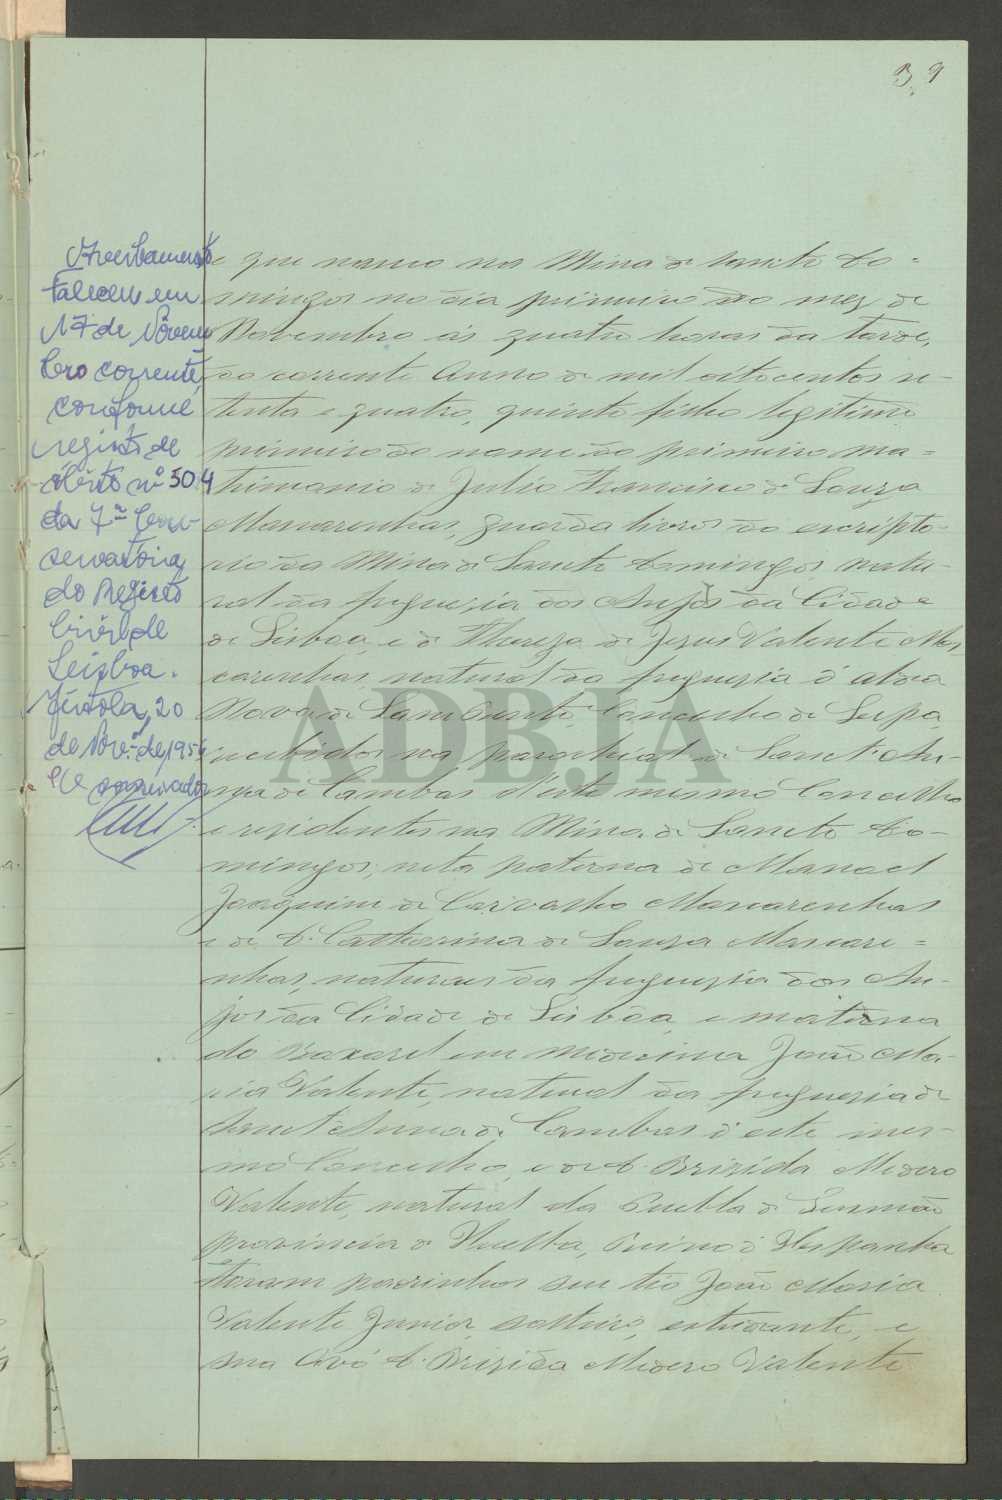 39
Averbamento
Faleceu em
17 de Novem
bro corrente,
conforme
registo de
óbito nº 504
da 7ª Con-
servatória
do Registo
Civil de
Lisboa.
Mértola, 20
de Nov.º de 195
O conservador
e que nasceu na Mina de Sancto Do-
mingos no dia primeiro do mez de
Novembro ás quatro horas da tarde,
do corrente Anno de mil oitocentos se-
tenta e quatro, quinto filho legitimo
primeiro do nome do primeiro ma-
trimonio de Julio Francisco de Souza
Mascarenhas, guarda livros do escripto-
rio da Mina de Sancto Domingos, natu-
ral da freguezia dos Anjos da Cidade
de Lisboa, e de Thereza de Jezus Valente Mas
carenhas, natural da freguezia d'aldea
Nova de Sam Bento, Concelho de Serpa,
recebidos na parochial de Sanct'An-
na de Cambas d'este mesmo Concelho
e residentes na Mina de Sancto Do-
mingos; neta paterna de Manoel
Joaquim de Carvalho Mascarenhas
e de D. Catharina de Souza Mascare-
nhas, naturaes da freguezia dos An-
jos da Cidade de Lisbôa, e materna
do Baxarel em medicina João Ma-
ria Valente, natural da freguezia de
Sanct'Anna de Cambas d'este mes-
mo Concelho, e de D. Brizida Medero
Valente, natural da Puebla de Gusmão
provincia de Huelba, Reino d'Hespanha
Foram padrinhos seu tio João Maria
Valente Junior, solteiro, estudante, e
sua Avó D. Brizida Medero Valente
ADBJA